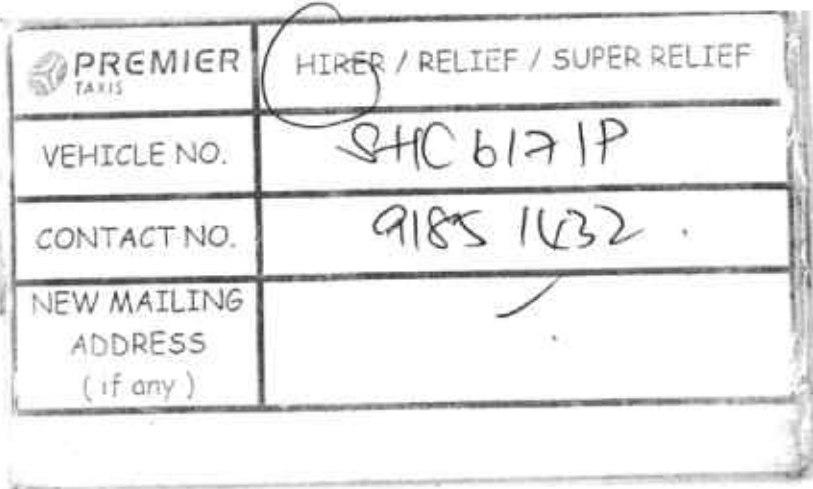 PREMIER
TAXIS
HIRER / RELIEF / SUPER RELIEF
VEHICLE NO.
SHC 6171P
CONTACT NO.
9185 1432 .
NEW MAILING
ADDRESS
( if any )
/